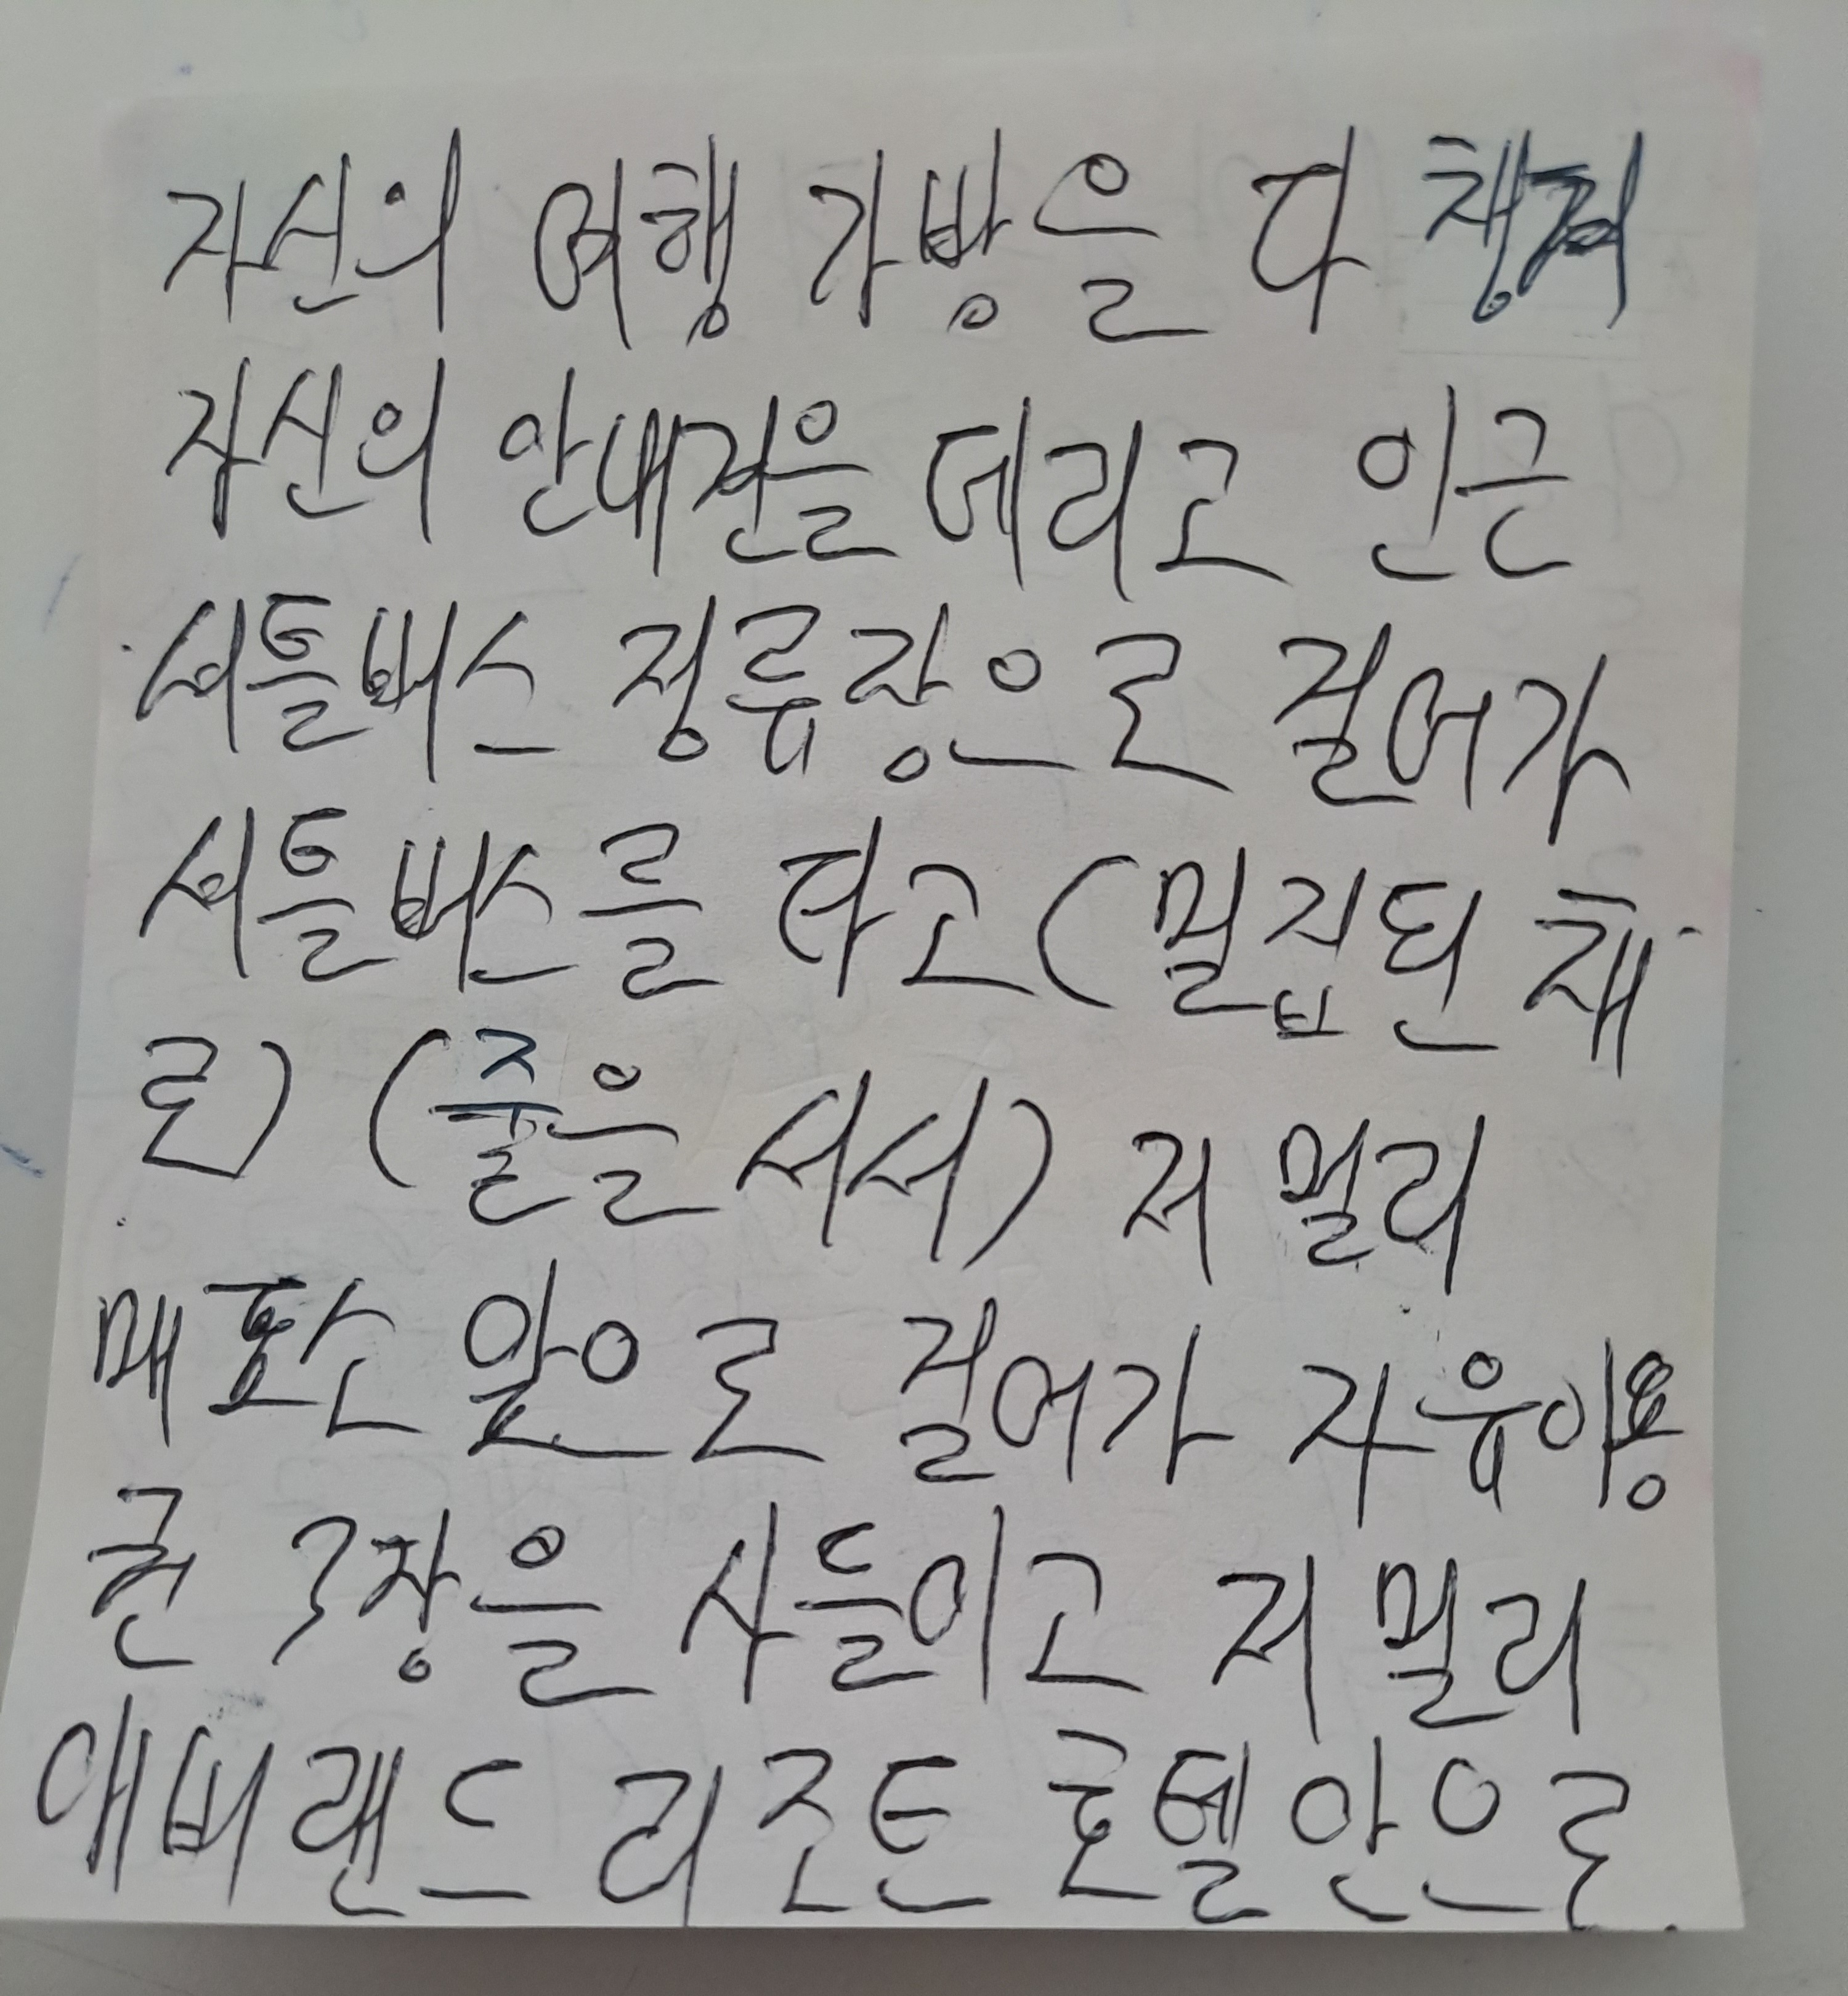 자신의 여행 가방을 다 챙겨
자신의 안내견을 데리고 인근
셔틀버스 정류장으로 걸어가
셔틀버스를 타고(밀집된 채
로) (줄을 서서) 저 멀리
매표소 앞으로 걸어가 자유이용
권 3장을 사들이고 저 멀리
애버랜드 리조트 호텔 안으로